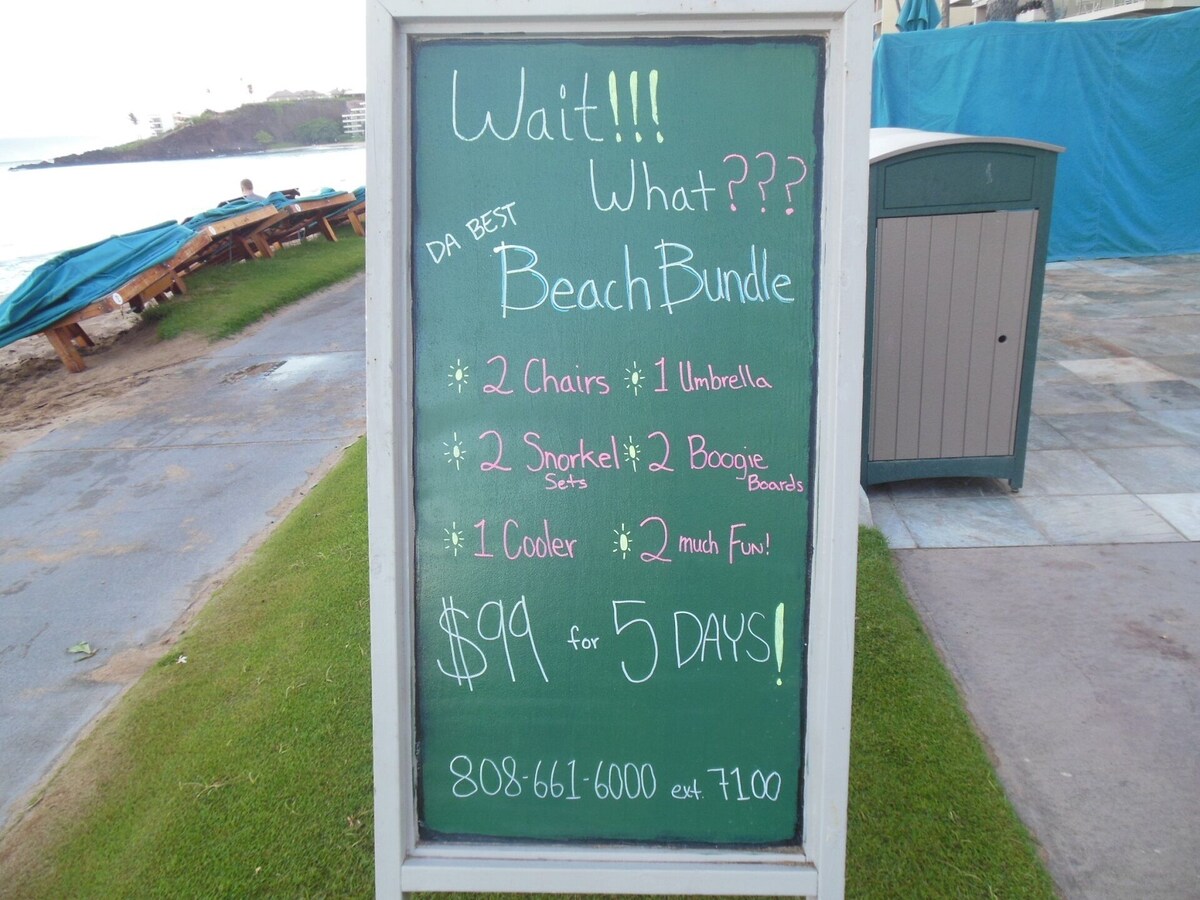 Wait!!!
What???
DA BEST
Beach Bundle
2 Chairs 1 Umbrella
2 Snorkel Sets 2 Boogie Boards
1 Cooler 2 much FUN!
$99 for 5 DAYS!
808-661-6000 ext. 7100